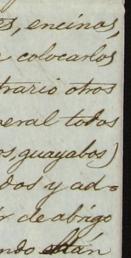 es, encinos,
colocarlos
trario otros
neral todos
os, guayabos)
dos y ad-
r de abrigo
ndo están